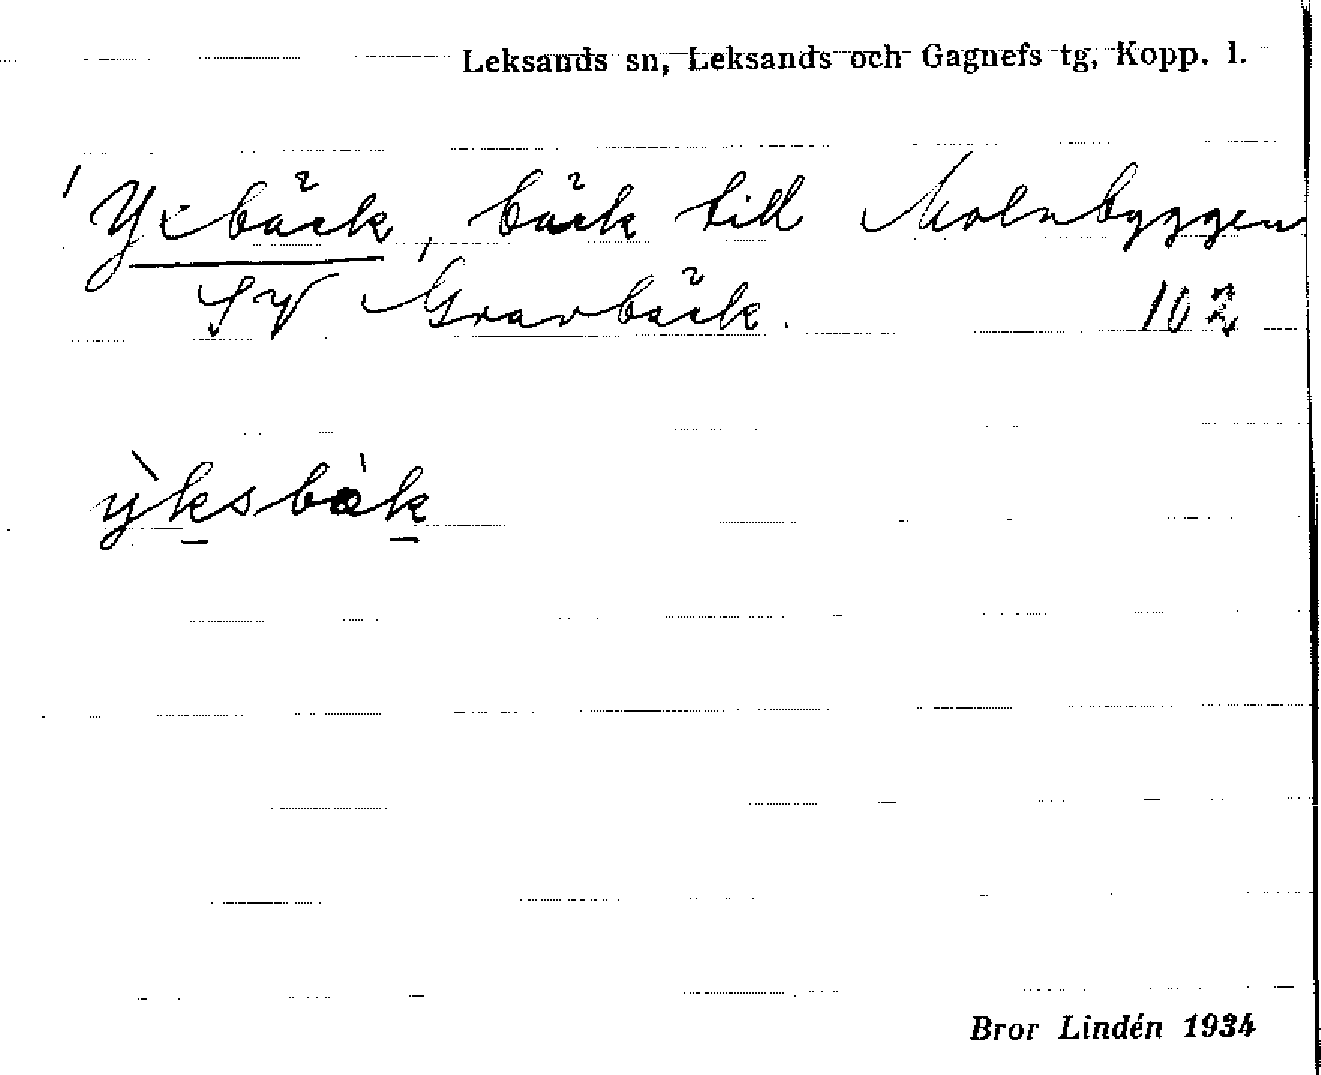 Leksands sn, Leksands och Gagnefs tg, Kopp. l.
'Yxbäck, bäck till Molnbyggen
SV Gravbäck. 102
ỳksbäk
Bror Lindén 1934